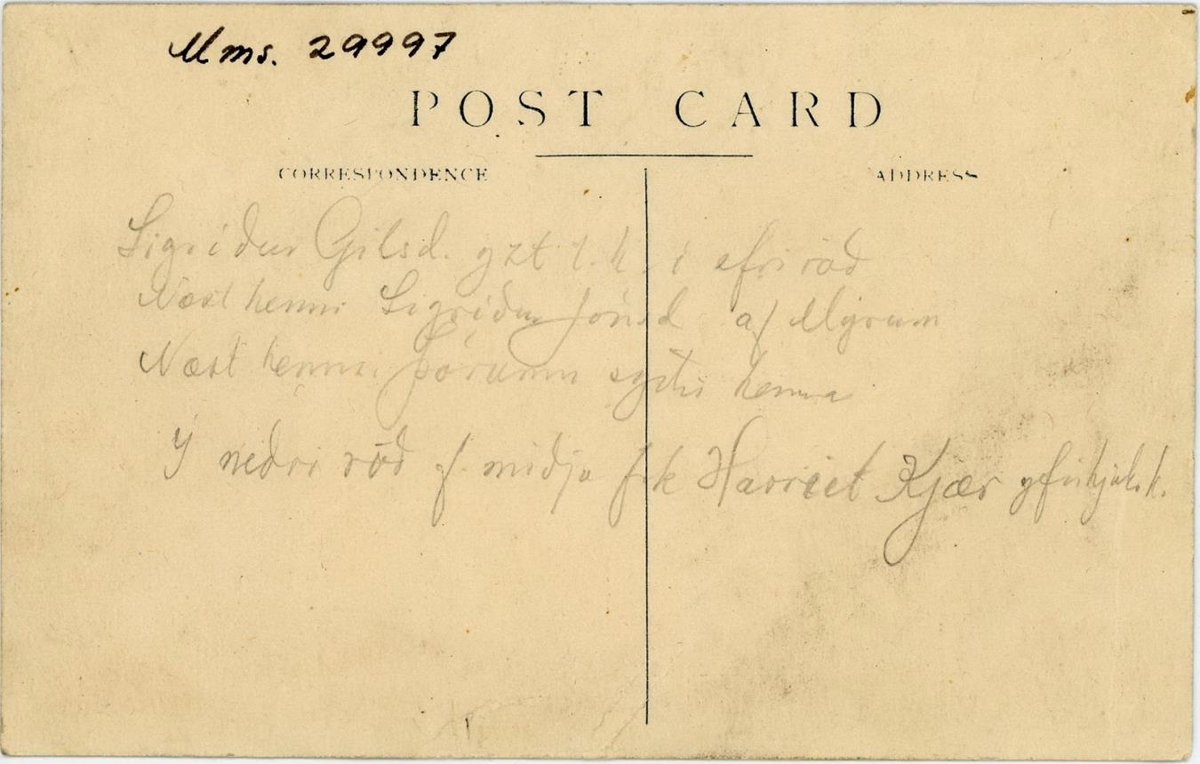 Mms. 29997
POST CARD
CORRESPONDENCE
ADDRESS
Sigríður Gilsd. yzt t.h. í efri röð
Næst henni Sigríður Jónsd af Mýrum
Næst henni Þórunn systir henna
Í neðri röð f. miðju frk Harriet Kjær yfirhjúk.k.